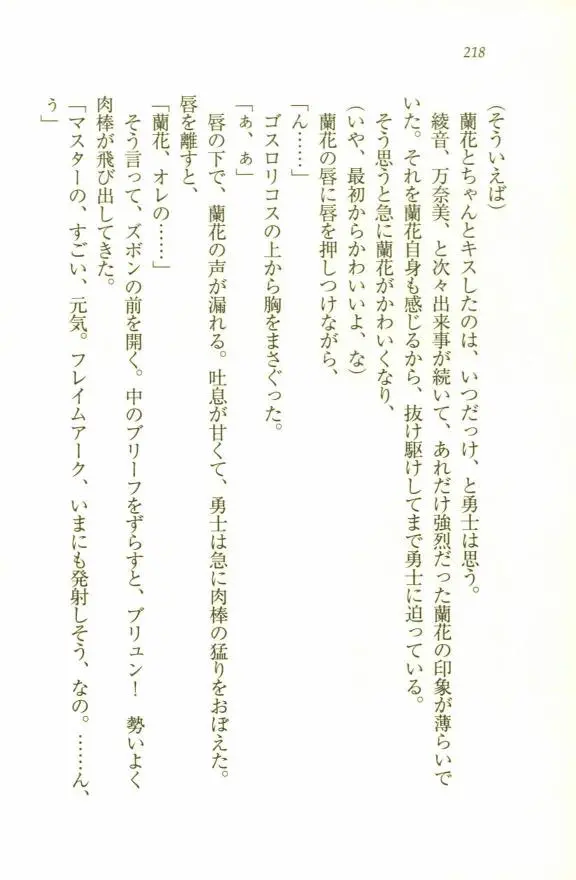 218
（そういえば）
蘭花とちゃんとキスしたのは、いつだっけ、と勇士は思う。
綾音、万奈美、と次々出来事が続いて、あれだけ強烈だった蘭花の印象が薄らいで
いた。それを蘭花自身も感じるから、抜け駆けしてまで勇士に迫っている。
そう思うと急に蘭花がかわいくなり、
（いや、最初からかわいいよ、な）
蘭花の唇に唇を押しつけながら、
「ん……」
ゴスロリコスの上から胸をまさぐった。
「ぁ、ぁ」
唇の下で、蘭花の声が漏れる。吐息が甘くて、勇士は急に肉棒の猛りをおぼえた。
唇を離すと、
「蘭花、オレの……」
そう言って、ズボンの前を開く。中のブリーフをずらすと、ブリュン！　勢いよく
肉棒が飛び出してきた。
「マスターの、すごい、元気。フレイムアーク、いまにも発射しそう、なの。……ん、
ぅ」